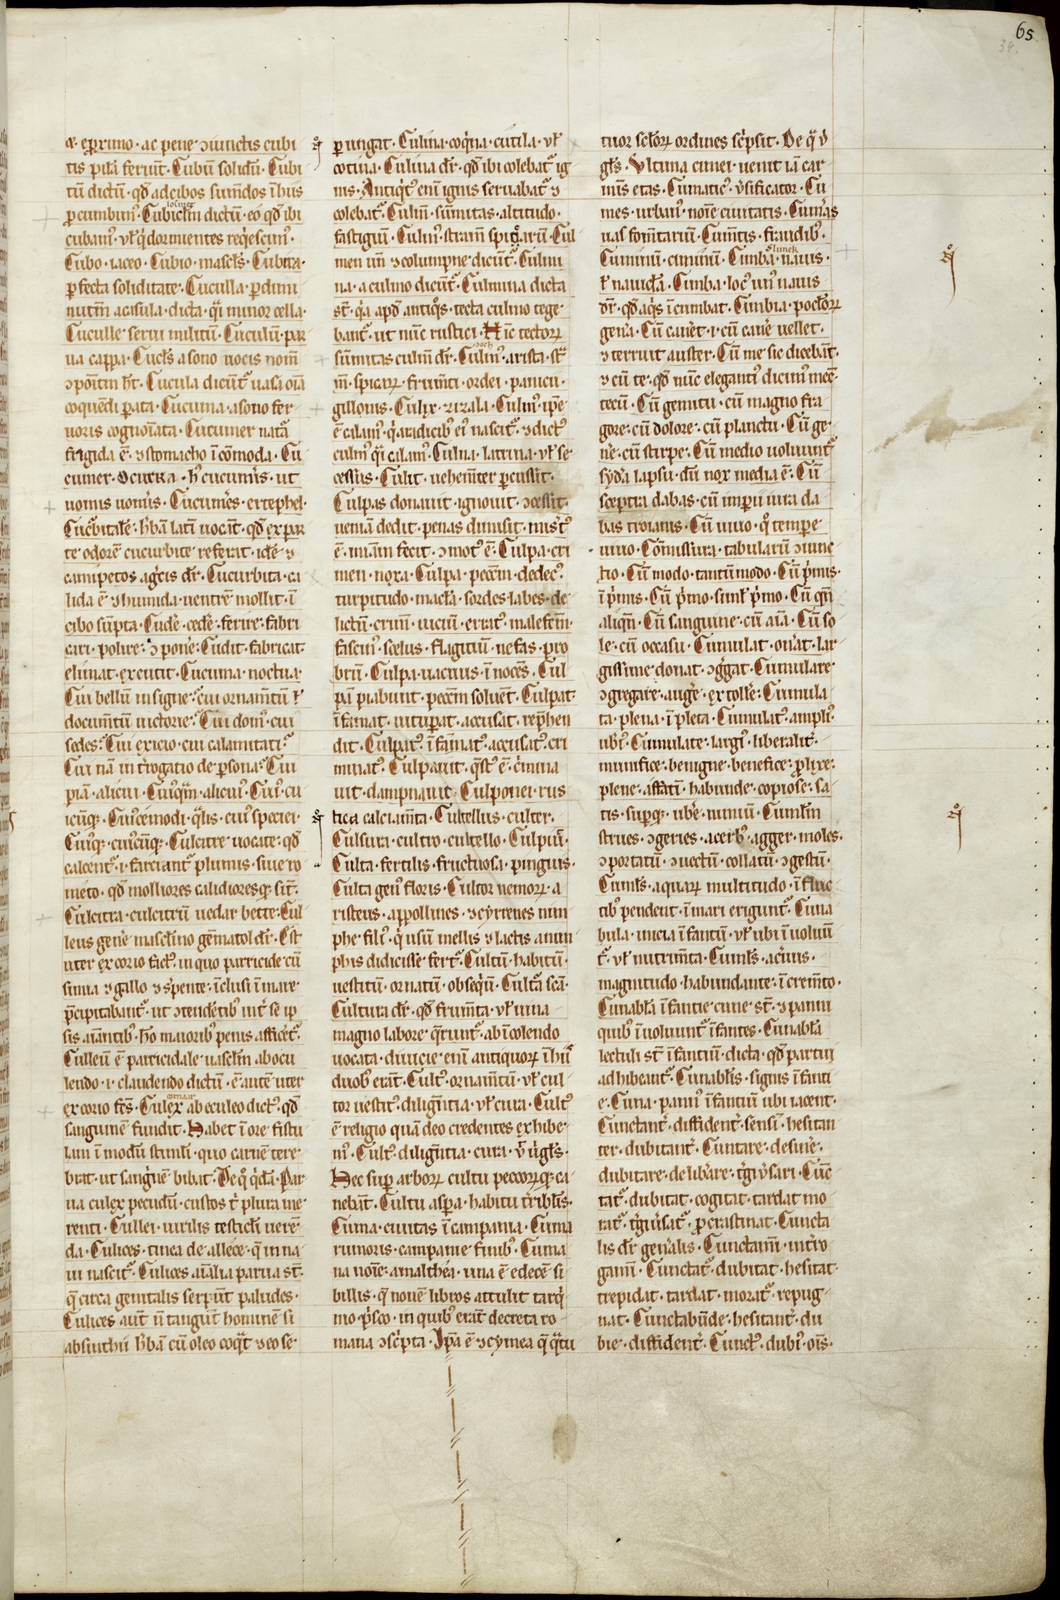 65
34.
e eprimo · ac pene · ɔiunctis cubi
tis pila feriunt · Cubū solidū · Cubi
tū dictū · qđ ad cibos sumēdos ī his
locmer
pcumbimꝰ · Cubiclm dictū · eo qđ ibi
cubamꝰ · vł q̇ dormientes reqescimꝰ ·
Cubo · iaceo · Cubio · mascłs · Cubica ·
pfecta soliditate · Cuculla · p dimi
nutīm a casula · dicta · qi minor cella ·
Cuculle · serui militū · Cuculū · par
ua cappa · Cuclꝰs a sono uocis nom̄
ɔpoītm ht · Cucula dicūt uasa oīa
coquēdi parata · Cucuma · a sono fer
uoris cognoīata · Cucumer natā
frigida ē · ⁊ stomacho īcōmoda · Cu
cumer
uomis uomis · Cucumēs · ertephel ·
Cucurbitale · hbā latī uocāt · qđ ex par
te odorē cucurbite referat · idē ⁊
campetos agcis dr · Cucurbita · ca
lida ē ⁊ humida · uentrē mollit · ī
cibo sūpta · Cude · cede · ferire · fabri
cari · polire · ɔponē · Cudit · fabricat
elimat · excutit · Cucuma · noctua ·
Cui bellū insigne · cui ornamtū ł
documtū uictorie · Cui domꝰ · cui
sedes · Cui exicio · cui calamitati ·
Cui nā īnt̄rogatio de psona · Cui
piā · alicui · Cuiq̄m · alicui · Cuiꝰ · cu
icūq · Cuiꝰcemodi · q̄lis · cuiꝰ speciei ·
Cuiꝰq · cuiꝰcūq · Culcitre uocate · qđ
calcent · i · farciant plumis · siue to
mēto · qđ molliores calidioresq sīt ·
Culcitra · culcitrū uedar bette · Cul
leus geñe masclīno gēmatol dr · Est
uter ex corio factꝰ · in quo parricide cū
simia ⁊ gallo ⁊ s̄pente · īclusi ī mare
p̄cipitabant · ut ɔtendētibꝰ inr̄ se ip
sis aīantibꝰ · hō maioribꝰ penis afficet ·
Culleū ē parricidale uasclm ab occu
lendo · i · claudendo dictū · ē autē uter
ex corio fcs · Culex ab aculeo dictꝰ · qđ
sanguinē fundit · Habet ī ore fistu
lam ī modū stimli · quo carnē tere
brat · ut sanguē bibat · De q̇ q̇dā · Par
ua culex pecudū · custos t̄ plura me
renti · Cullei · uirilis testicli uere
da · Culices · tinea de allece · q̄ in na
ui nascit · Culices aīalia parua st̄ ·
q̄ circa genitalis serpūt paludes ·
Culices aut n̄ tangūt hominē si
absinthii hbā cū oleo coq̄t ⁊ eo se
pungat · Culina · coq̇na · cutila · vł
cocina · Culina dr · qđ ibi colebat ig
nis · Antiq̇tꝰ enī ignis seruabat ⁊
colebat · Culm̄ · sūmitas · altitudo ·
fastigiū · Culmꝰ · stram̄ spicarū · Cul
men um̄ ⁊ columpne dicūt · Culmi
na · a culmo dicūt · Culmina dicta
st̄ · q̇a apđ antiq̇s · tecta culmo tege
bant · ut nūc rustici · Hīc tectoꝝ
sūmitas culm̄ dr · Culmꝰ · arista · sic
m̄ · spicaꝝ · frum̄ti · ordei · panicu ·
gillonis · Culpe · zizala · Culmꝰ · ipe
ē calamꝰ · q̇ a radicibꝰ eiꝰ nascit · ⁊ dictꝰ
culmꝰ q̇i calamꝰ · Culna · latrina · vł se
cessus · Culit · uehemter percussit ·
Culpas donauit · ignouit · ɔcessit ·
ueniā dedit · penas dimisit · misꝰtꝰ
ē · ueniam fecit · ɔmotꝰ ē · Culpa · cri
men · noxa · Culpa · peccm · dedecꝰ ·
turpitudo · macla · sordes · labes · de
lictū · crimn̄ · uiciū · errat · malefcm̄ ·
facinꝰ · scelus · flagitiū · nefas · pro
brū · Culpa · uacuus · ī nocēs · Cul
pā piabunt · peccm soluet · Culpat
īfamat · uituperat · accusat · rep̄hen
dit · Culpat · ī famat · accusat · cri
minat · Culpauit · q̄st ē · crimina
uit · dampnauit · Culponei · rus
tica calciam̄ta · Cultellus · culter ·
Culsura · cultro · cultello · Culpiū ·
Culta · fertilis · fructuosa · pinguis ·
Culta genꝰ floris · Cultor nemorꝝ · a
risteus · appollines · ⁊ cyrenes nim
phe filꝰ · q̇ usū mellis ⁊ lactis a nim
phis didicisse fert · Cultū · habitū ·
uestitū · ornatū · obseq̇ū · Culta scā ·
Cultura dr · qđ frum̄ta · vł uina
magno labore q̄runt · ab īcolendo
uocata · diuicie enī antiquorꝝ ī his
duobꝰ erāt · Cultꝰ · ornamtū · vł cul
tor uestitꝰ · diligētia · vł cura · Cultꝰ
ē religio quā deo credentes exhibe
mꝰ · Cultꝰ · diligētia · cura · v̄ v̄gls ·
Hec sup arborꝝ cultu pecorꝝq ca
nebat · Cultu aspa · habitu t̄riblis ·
Cuma · ciuitas ī campania · Cuma
rumoris · campanie finibꝰ · Cuma
na noīe · amalthea · una ē e decē si
billis · q̄ nouē libros attulit tarq̇
nio · p̄sco · in quibꝰ erāt decreta ro
mana ɔscripta · Ipa ē ⁊ cymea q̄ q̄tu
tuor sclorꝝ ordines scpsit · De q̄ v̄
gls · Vltima cumei · uenit iā car
minis etas · Cumaticꝰ · v̄sificator · Cu
mes · urbani · noīe ciuitatis · Cumeras
uas formtarium · Cumtis · fraudibꝰ ·
slunck
Cuminū · ciminū · Cimba · nauis ·
ł nauicla · Cimba · locꝰ imꝰ nauis
dr · qđ aq̇s īcumbat · Cimbia · poclorꝝ
gena · Cū cauet · i · cū caue uellet ·
⁊ terruit auster · Cū me sic dicebāt ·
⁊ cū te · qđ nūc elegantꝰ dicimꝰ mecē ·
tecū · Cū gemitu · cū magno fra
gore · cū dolore · cū planctu · Cū ge
ne · cū stirpe · Cū medio uoluūt
syda lapsu · dū nox media ē · Cū
sceptra dabas · cū imperii iura da
bas troianis · Cū uiuo · q̇ tempe
uiuo · Cōmissura · tabularū ɔiunc
tio · Cū modo · tantū modo · Cū p̄mis ·
ī p̄mis · Cū p̄mo · siml p̄mo · Cū qn̄
aliqn̄ · Cū sanguine · cū aīa · Cū so
le · cū occasu · Cumulat · ornat · lar
gissime donat · ɔgregat · Cumulare
ɔgregare · augere · extolle · Cumula
ta · plena · ī pleta · Cumulatꝰ · ampliꝰ ·
ubꝰ · Cumulate · largiꝰ · liberalit ·
munifice · benigne · benefice · prolixe ·
plene · affatī · habunde · copiose · sa
tis · supq · ube · nimiū · Cumlm
strues · ɔgeries · acerbꝰ · agger · moles ·
ɔportatū · ɔuectū · collatū · ɔgestū ·
Cumls · aquarꝝ multitudo · ī fluc
tibꝰ pendent · ī mari erigunt · Cuna
bula · uncia īfantū · vł ubi īuoluū
t · vł nutrimta · Cumls · aceruus ·
magnitudo · habundante · īcrem̄to ·
Cunabla · īfantie cune st̄ · ⁊ panni
quibꝰ īuoluunt īfantes · Cunabla
lectuli st̄ īfantiū · dicta · qđ partui
adhibeant · Cunablis · signis īfanti
e · Cuna · pannꝰ īfantiū ubi iacent ·
Cunctant · diffident · sensī · hesitan
ter · dubitant · Cuntare · desine ·
dubitare · deliberare · t̄giuersari · Cūc
tat · dubitat · cogitat · tardat mo
rat · t̄giuersat · procrastinat · Cuncta
lis dr gen̄alis · Cunctam̄ · int̄ro
gam̄ · Cunctat · dubitat · hesitat ·
trepidat · tardat · morat · repug
nat · Cunctabūde · hesitant · du
bie · diffident · Cunctꝰ · dubiꝰ · oīs ·